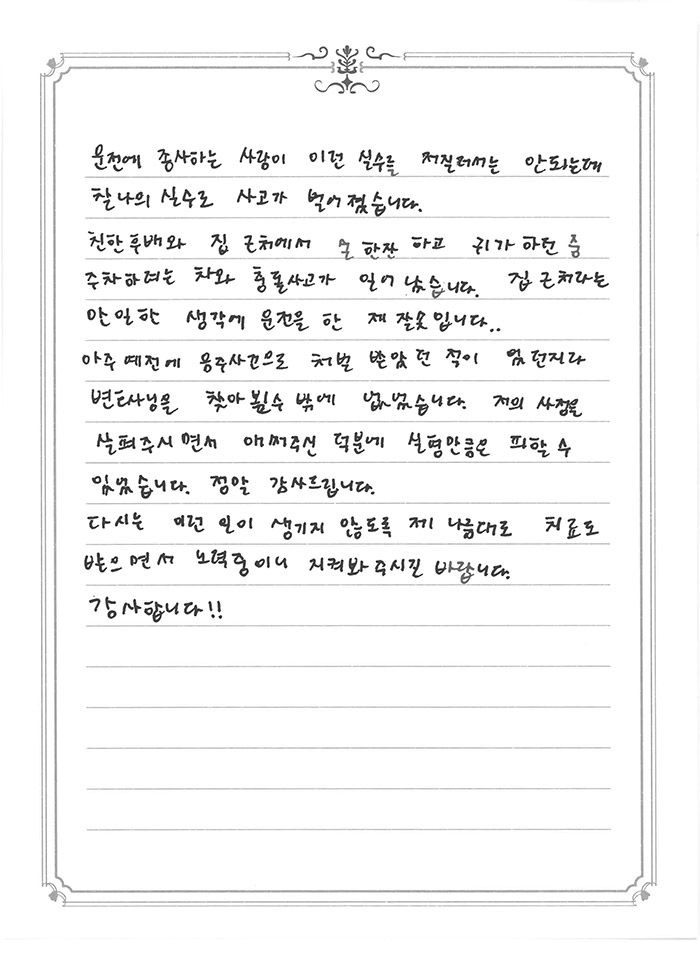 운전에 종사하는 사람이 이런 실수를 저질러서는 안되는데
찰나의 실수로 사고가 벌어졌습니다.
친한후배와 집 근처에서 술 한잔 하고 귀가 하던 중
주차하려는 차와 충돌사고가 일어 났습니다. 집 근처라는
안일한 생각에 운전을 한 제 잘못입니다..
아주 예전에 음주사건으로 처벌 받았던 적이 있던지라
변호사님을 찾아뵐수 밖에 없었습니다. 저의 사정을
살펴주시면서 애써주신 덕분에 실형만큼은 피할 수
있었습니다. 정말 감사드립니다.
다시는 이런 일이 생기지 않도록 제 나름대로 치료도
받으면서 노력중이니 지켜봐주시길 바랍니다.
감사합니다!!